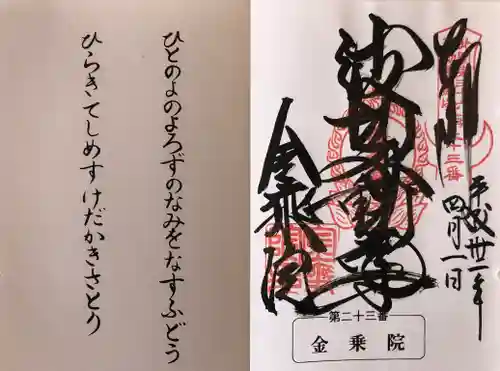 ひとのよのよろずのなみをなすふどう
ひらきてしめすけだかきさとり
奉拝
平成廿一年
四月一日
波切不動尊
金乗院
第二十三番
金乗院